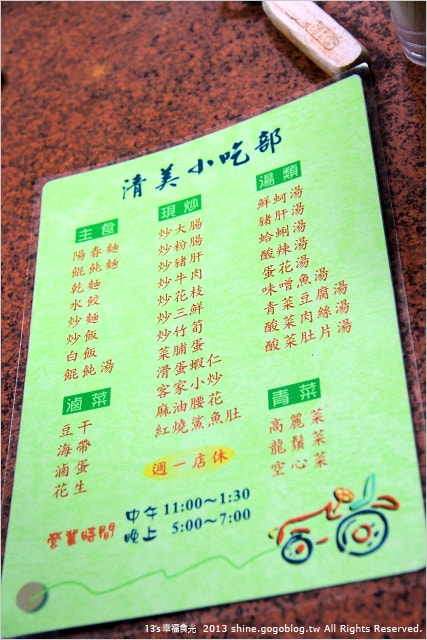 清美小吃部
主食
陽春麵
餛飩麵
乾麵
水餃
炒麵
炒飯
白飯
餛飩湯
滷菜
豆干
海帶
滷蛋
花生
現炒
炒大腸
炒粉腸
炒豬肝
炒牛肉
炒花枝
炒三鮮
炒竹筍
菜脯蛋
滑蛋蝦仁
客家小炒
麻油腰花
紅燒鯊魚肚
湯類
鮮蚵湯
豬肝湯
蛤蜊湯
酸辣湯
蛋花湯
味噌魚湯
青菜豆腐湯
酸菜肉絲湯
酸菜肚片湯
青菜
高麗菜
龍鬚菜
空心菜
週一店休
營業時間
中午 11:00~1:30
晚上 5:00~7:00
13's 幸福食光 2013 shine.gogoblog.tw All Rights Reserved.